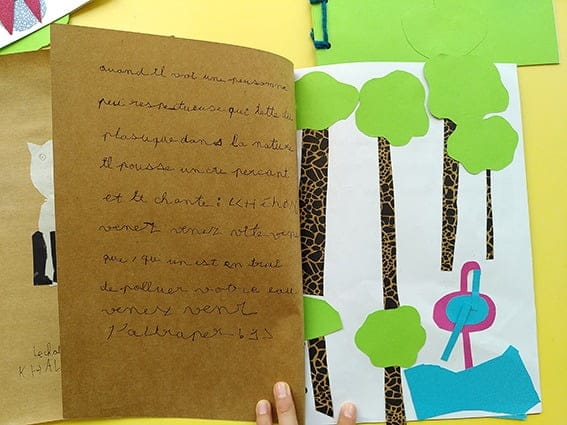 quand il voi une personne
peu respectueuse qui jette du
plastique dans la nature
Il pousse un cri perçant
et le chante : KHÉLON
venez venez vite vene
quelqu'un est en trait
de polluer votre eau
venez venez
l'attraper !
Lechat
KHAL